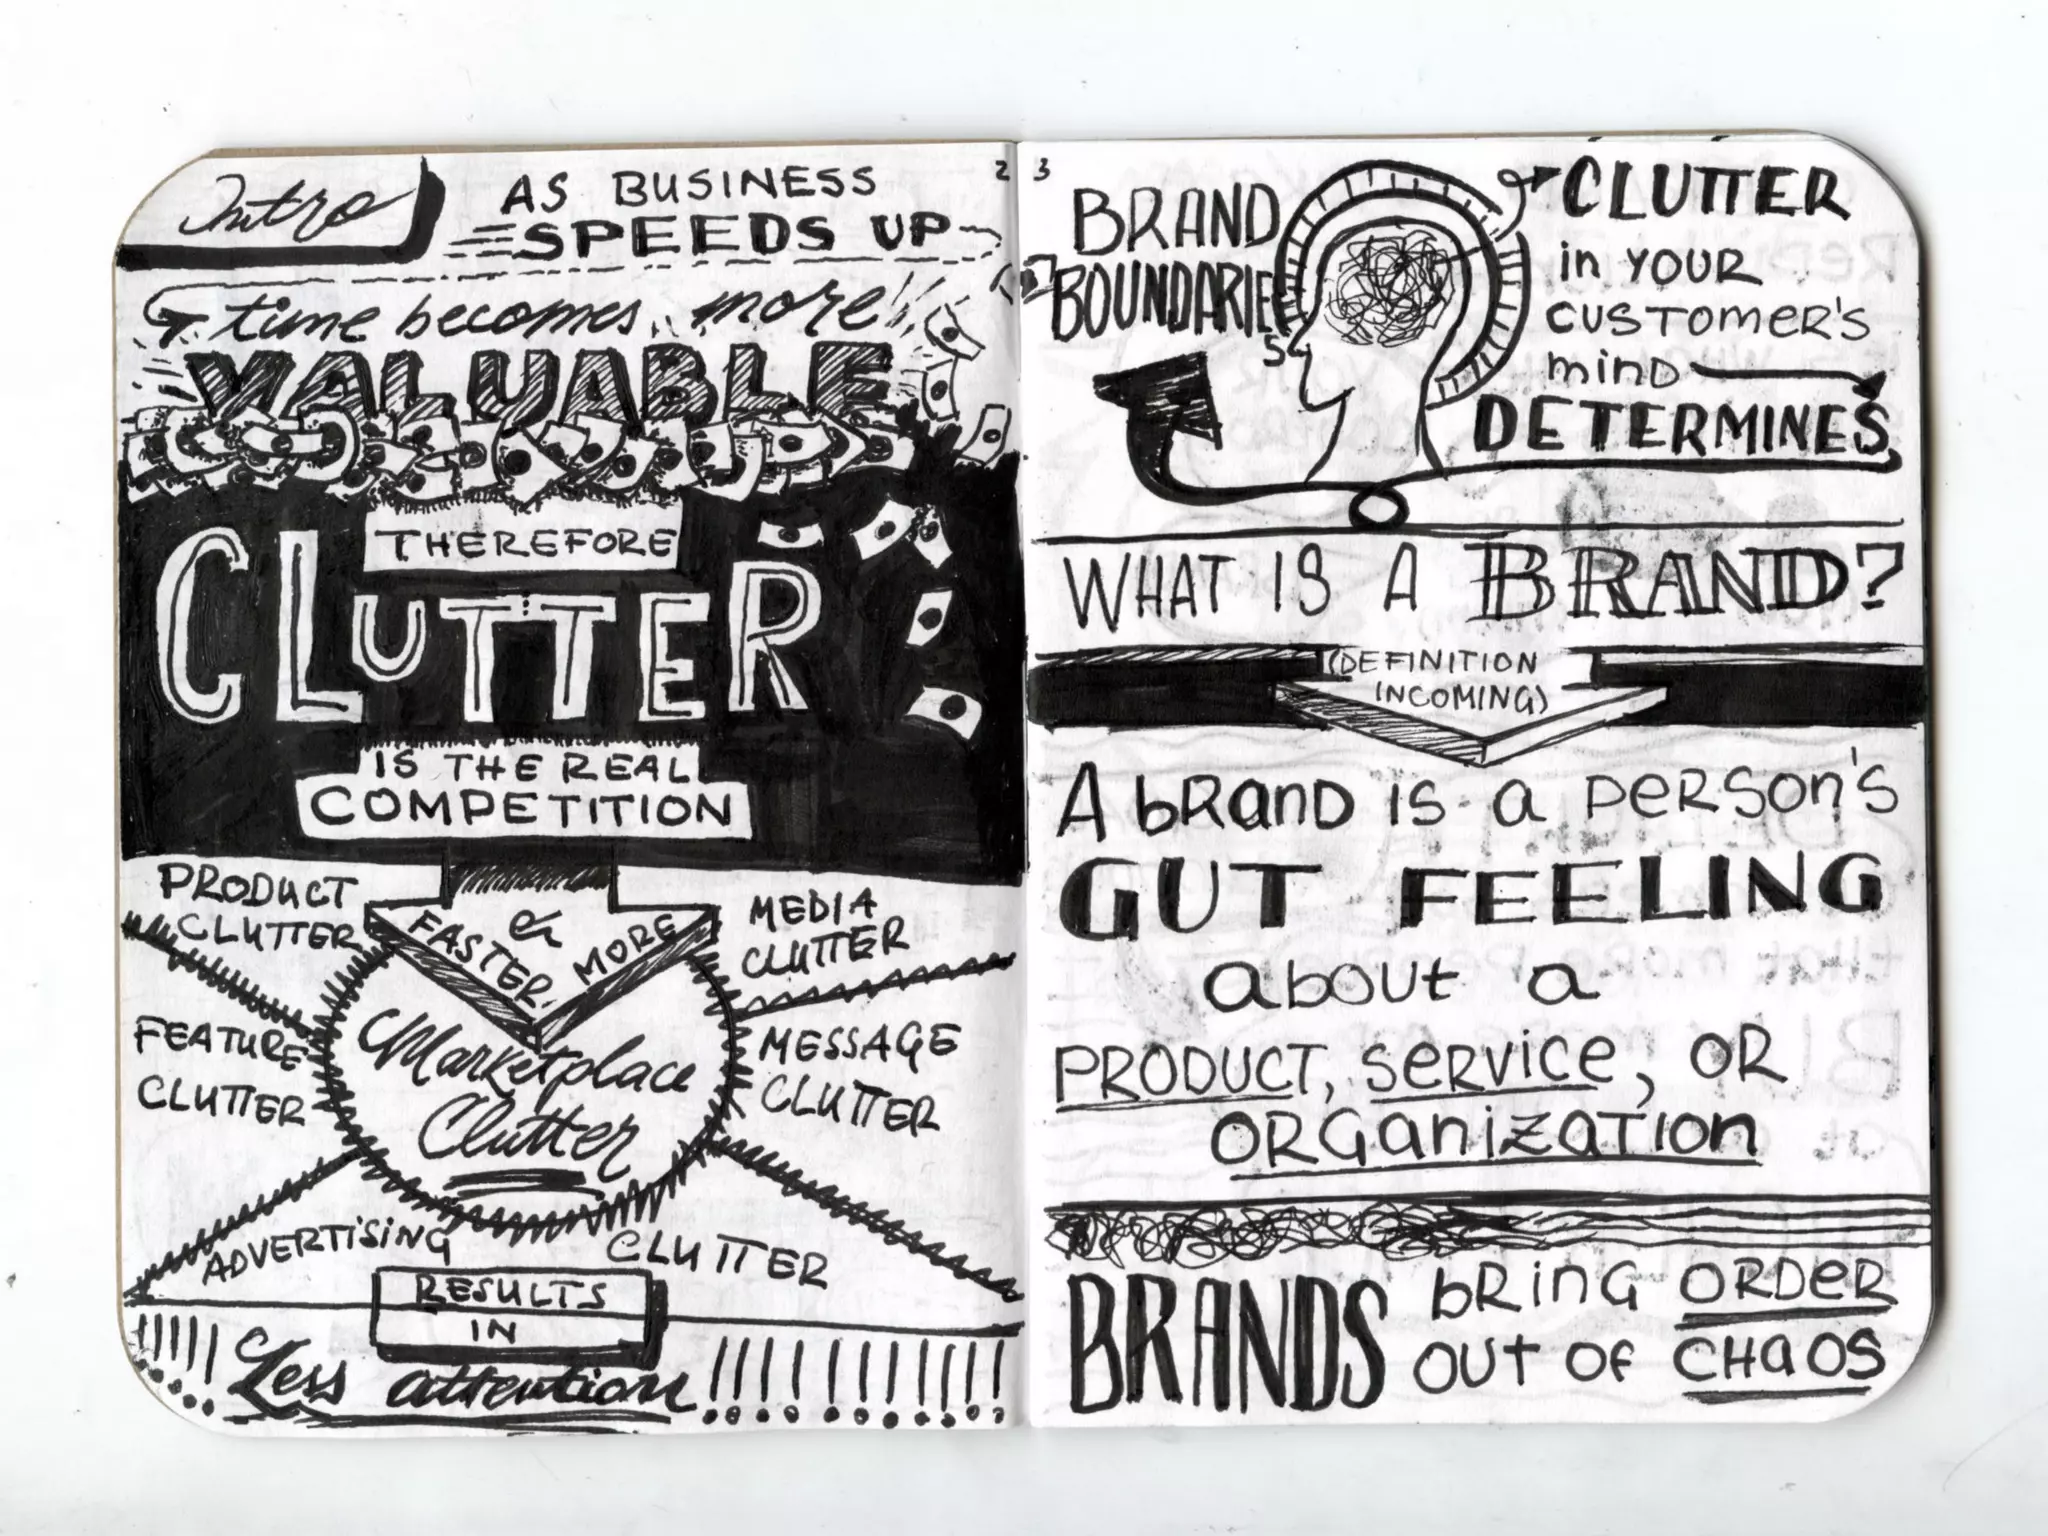 Intro
AS BUSINESS
SPEEDS UP
time becomes more
VALUABLE
THEREFORE
CLUTTER
IS THE REAL
COMPETITION
FASTER & MORE
Marketplace
Clutter
PRODUCT
CLUTTER
FEATURE
CLUTTER
MEDIA
CLUTTER
MESSAGE
CLUTTER
ADVERTISING CLUTTER
RESULTS
IN
!!!!! Less attention !!!!!!!!!!
2
3
BRAND
BOUNDARIES
CLUTTER
in YOUR
CUSTOMER'S
minD
DETERMINES
WHAT IS A BRAND?
(DEFINITION
INCOMING)
A bRanD is a peRson's
GUT FEELING
about a
PRODUCT, seRvice, OR
ORGanizaTion
BRANDS bRinG ORDeR
ouT oF CHaOS